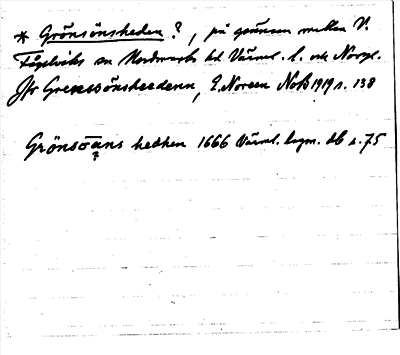 * Grönsönsheden ?, på gränsen mellan V.
Fågelviks sn Nordmarks hd Värml. l. och Norge.
Jfr Grenssönsheedenn, E. Noreen NoB 1919 s. 138
Grönsöäns hedhen 1666 Värml. lagm. db s. 75
?